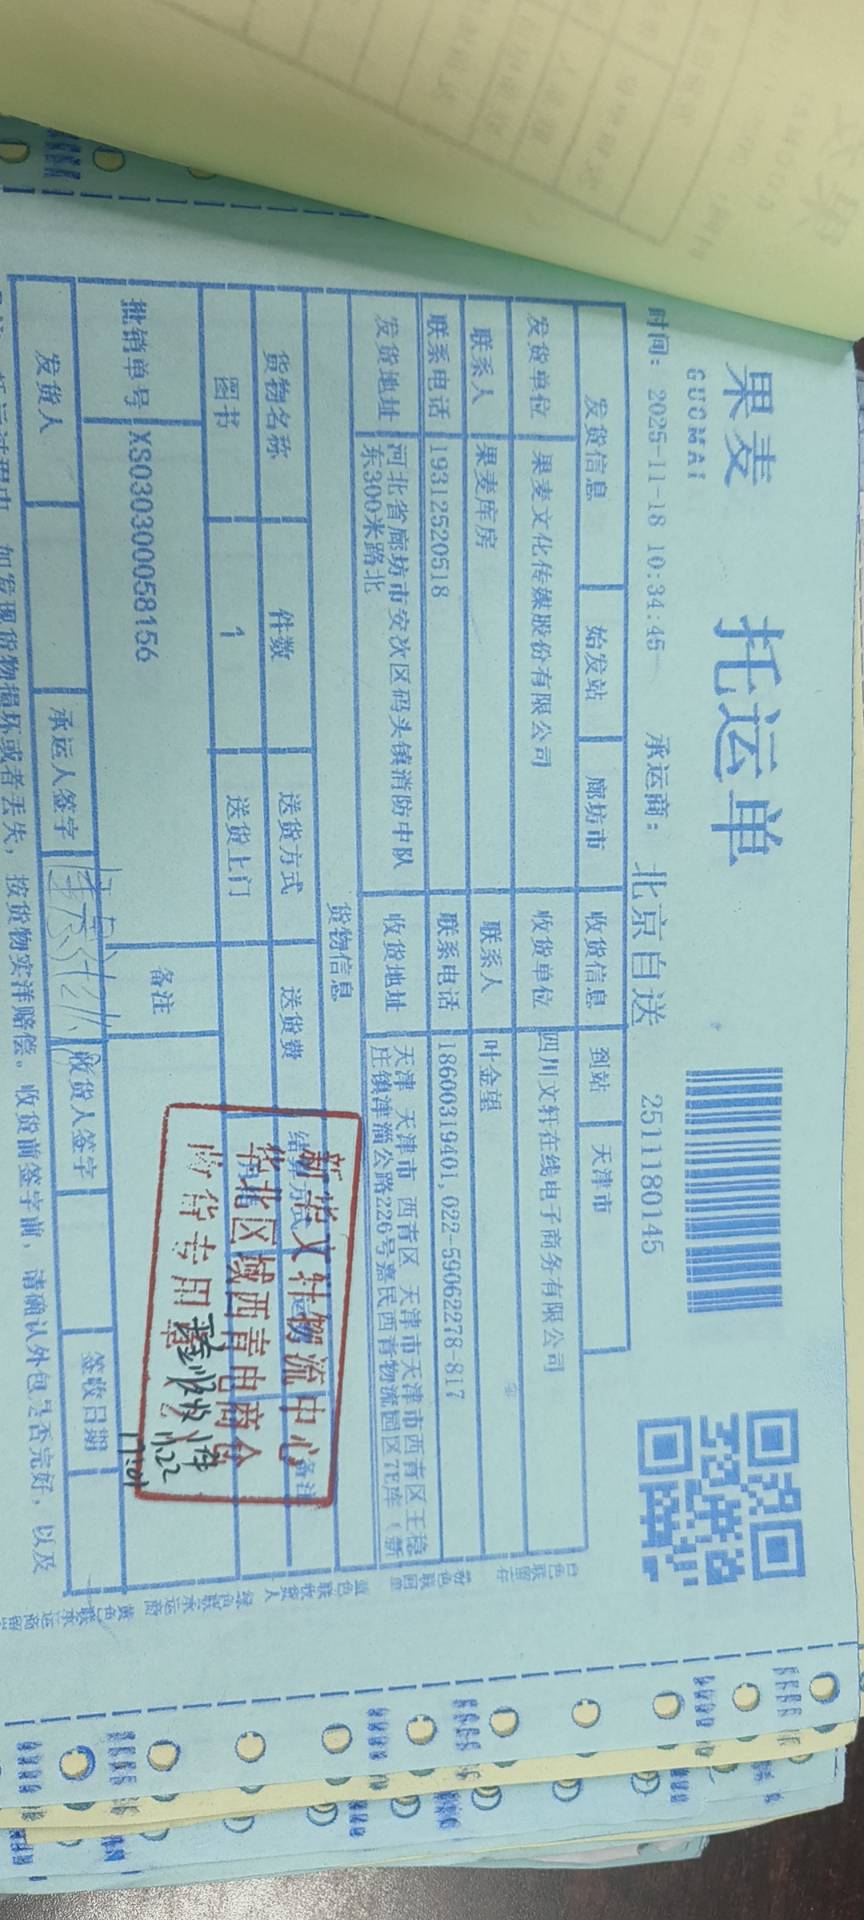 果麦
GUOMAI
托运单
时间: 2025-11-18 10:34:45 承运商: 北京自送 2511180145
发货信息 始发站 廊坊市 收货信息 到站 天津市
发货单位 果麦文化传媒股份有限公司 收货单位 四川文轩在线电子商务有限公司
联系人 果麦库房 联系人 叶金望
联系电话 19312520518 联系电话 18600319401,022-59062278-817
发货地址 河北省廊坊市安次区码头镇消防中队东300米路北 收货地址 天津 天津市 西青区 天津市天津市西青区王稳庄镇津淄公路226号嘉民西青物流园区7E库(新
货物信息
货物名称 件数 送货方式 送货费 结算方式 备注
图书 1 送货上门
批销单号 XS030300058156 备注
新华文轩物流中心
华北区域西青电商仓
收货专用章
实收1件
11.22
17:01
发货人 承运人签字 收货人签字 签收日期
托运过程中, 如发现货物损坏或者丢失, 按货物实洋赔偿。收货前签字前, 请确认外包是否完好, 以及
白色联留存 粉色联回单 蓝色联收货人 绿色联承运商 黄色联承运商留